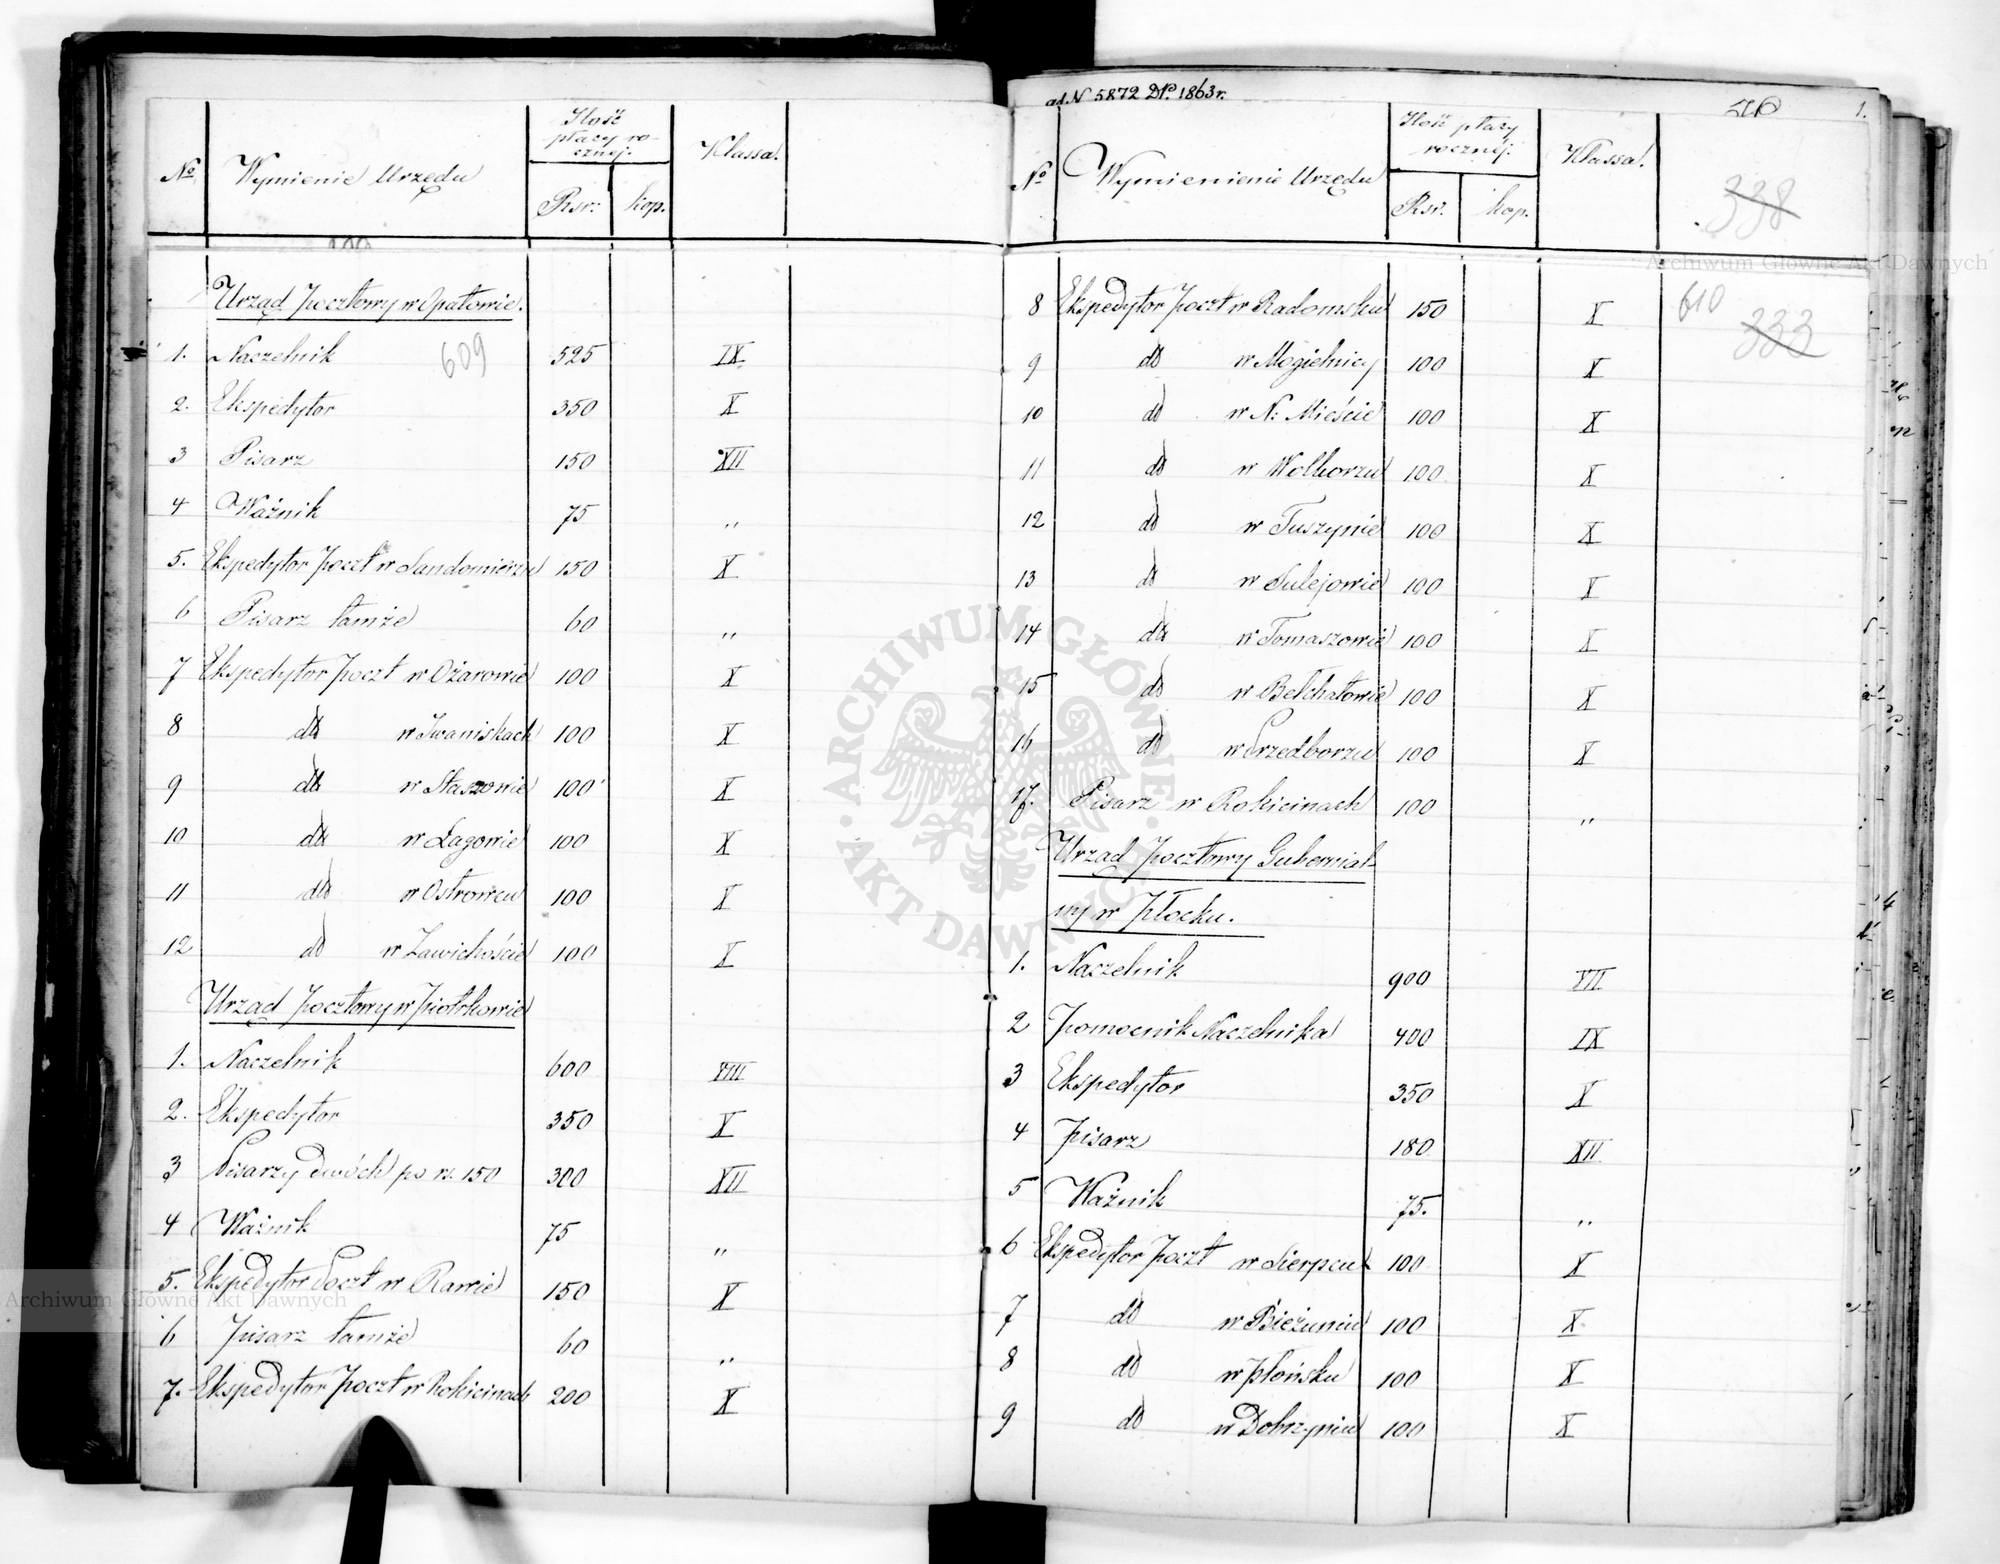 No Wymienie Urzędu Ilość płacy rocznej. Rsr: kop. Klassa.
Urząd Pocztowy w Opatowie.
609
1. Naczelnik 525 IX
2. Ekspedytor 350 X
3 Pisarz 150 XII
4 Woźnik 75 "
5. Ekspedytor Poczt w Sandomierzu 150 X
6 Pisarz tamże 60 "
7 Ekspedytor Poczt w Ożarowie 100 X
8 do w Iwaniskach 100 X
9 do w Staszowie 100 X
10 do w Łagowie 100 X
11 do w Ostrowcu 100 X
12 do w Zawichoście 100 X
Urząd Pocztowy w Piotrkowie
1. Naczelnik 600 VIII
2. Ekspedytor 350 X
3 Pisarzy dwóch po rs. 150 300 XII
4 Woźnik 75 "
5. Ekspedytor Poczt w Rawie 150 X
6 Pisarz tamże 60 "
7. Ekspedytor Poczt w Rokicinach 200 X
ad N 5872 Dp. 1863 r.
1.
No Wymienienie Urzędu Ilość płacy rocznéj. Rsr. kop. Klassa.
338
610
333
8 Ekspedytor Poczt w Radomsku 150 X
9 do w Mogielnicy 100 X
10 do w N: Mieście 100 X
11 do w Wolborzu 100 X
12 do w Tuszynie 100 X
13 do w Sulejowie 100 X
14 do w Tomaszowie 100 X
15 do w Bełchatowie 100 X
16 do w Przedborzu 100 X
17. Pisarz w Rokicinach 100 "
Urząd Pocztowy Gubernial-
ny w Płocku.
1. Naczelnik 900 VII
2 Pomocnik Naczelnika 400 IX
3 Ekspedytor 350 X
4 Pisarz 180 XII
5 Woźnik 75. "
6 Ekspedytor Poczt w Sierpcu 100 X
7 do w Bieżuniu 100 X
8 do w Płońsku 100 X
9 do w Dobrzyniu 100 X
ARCHIWUM GŁÓWNE AKT DAWNYCH
Archiwum Główne Akt Dawnych
Archiwum Główne Akt Dawnych